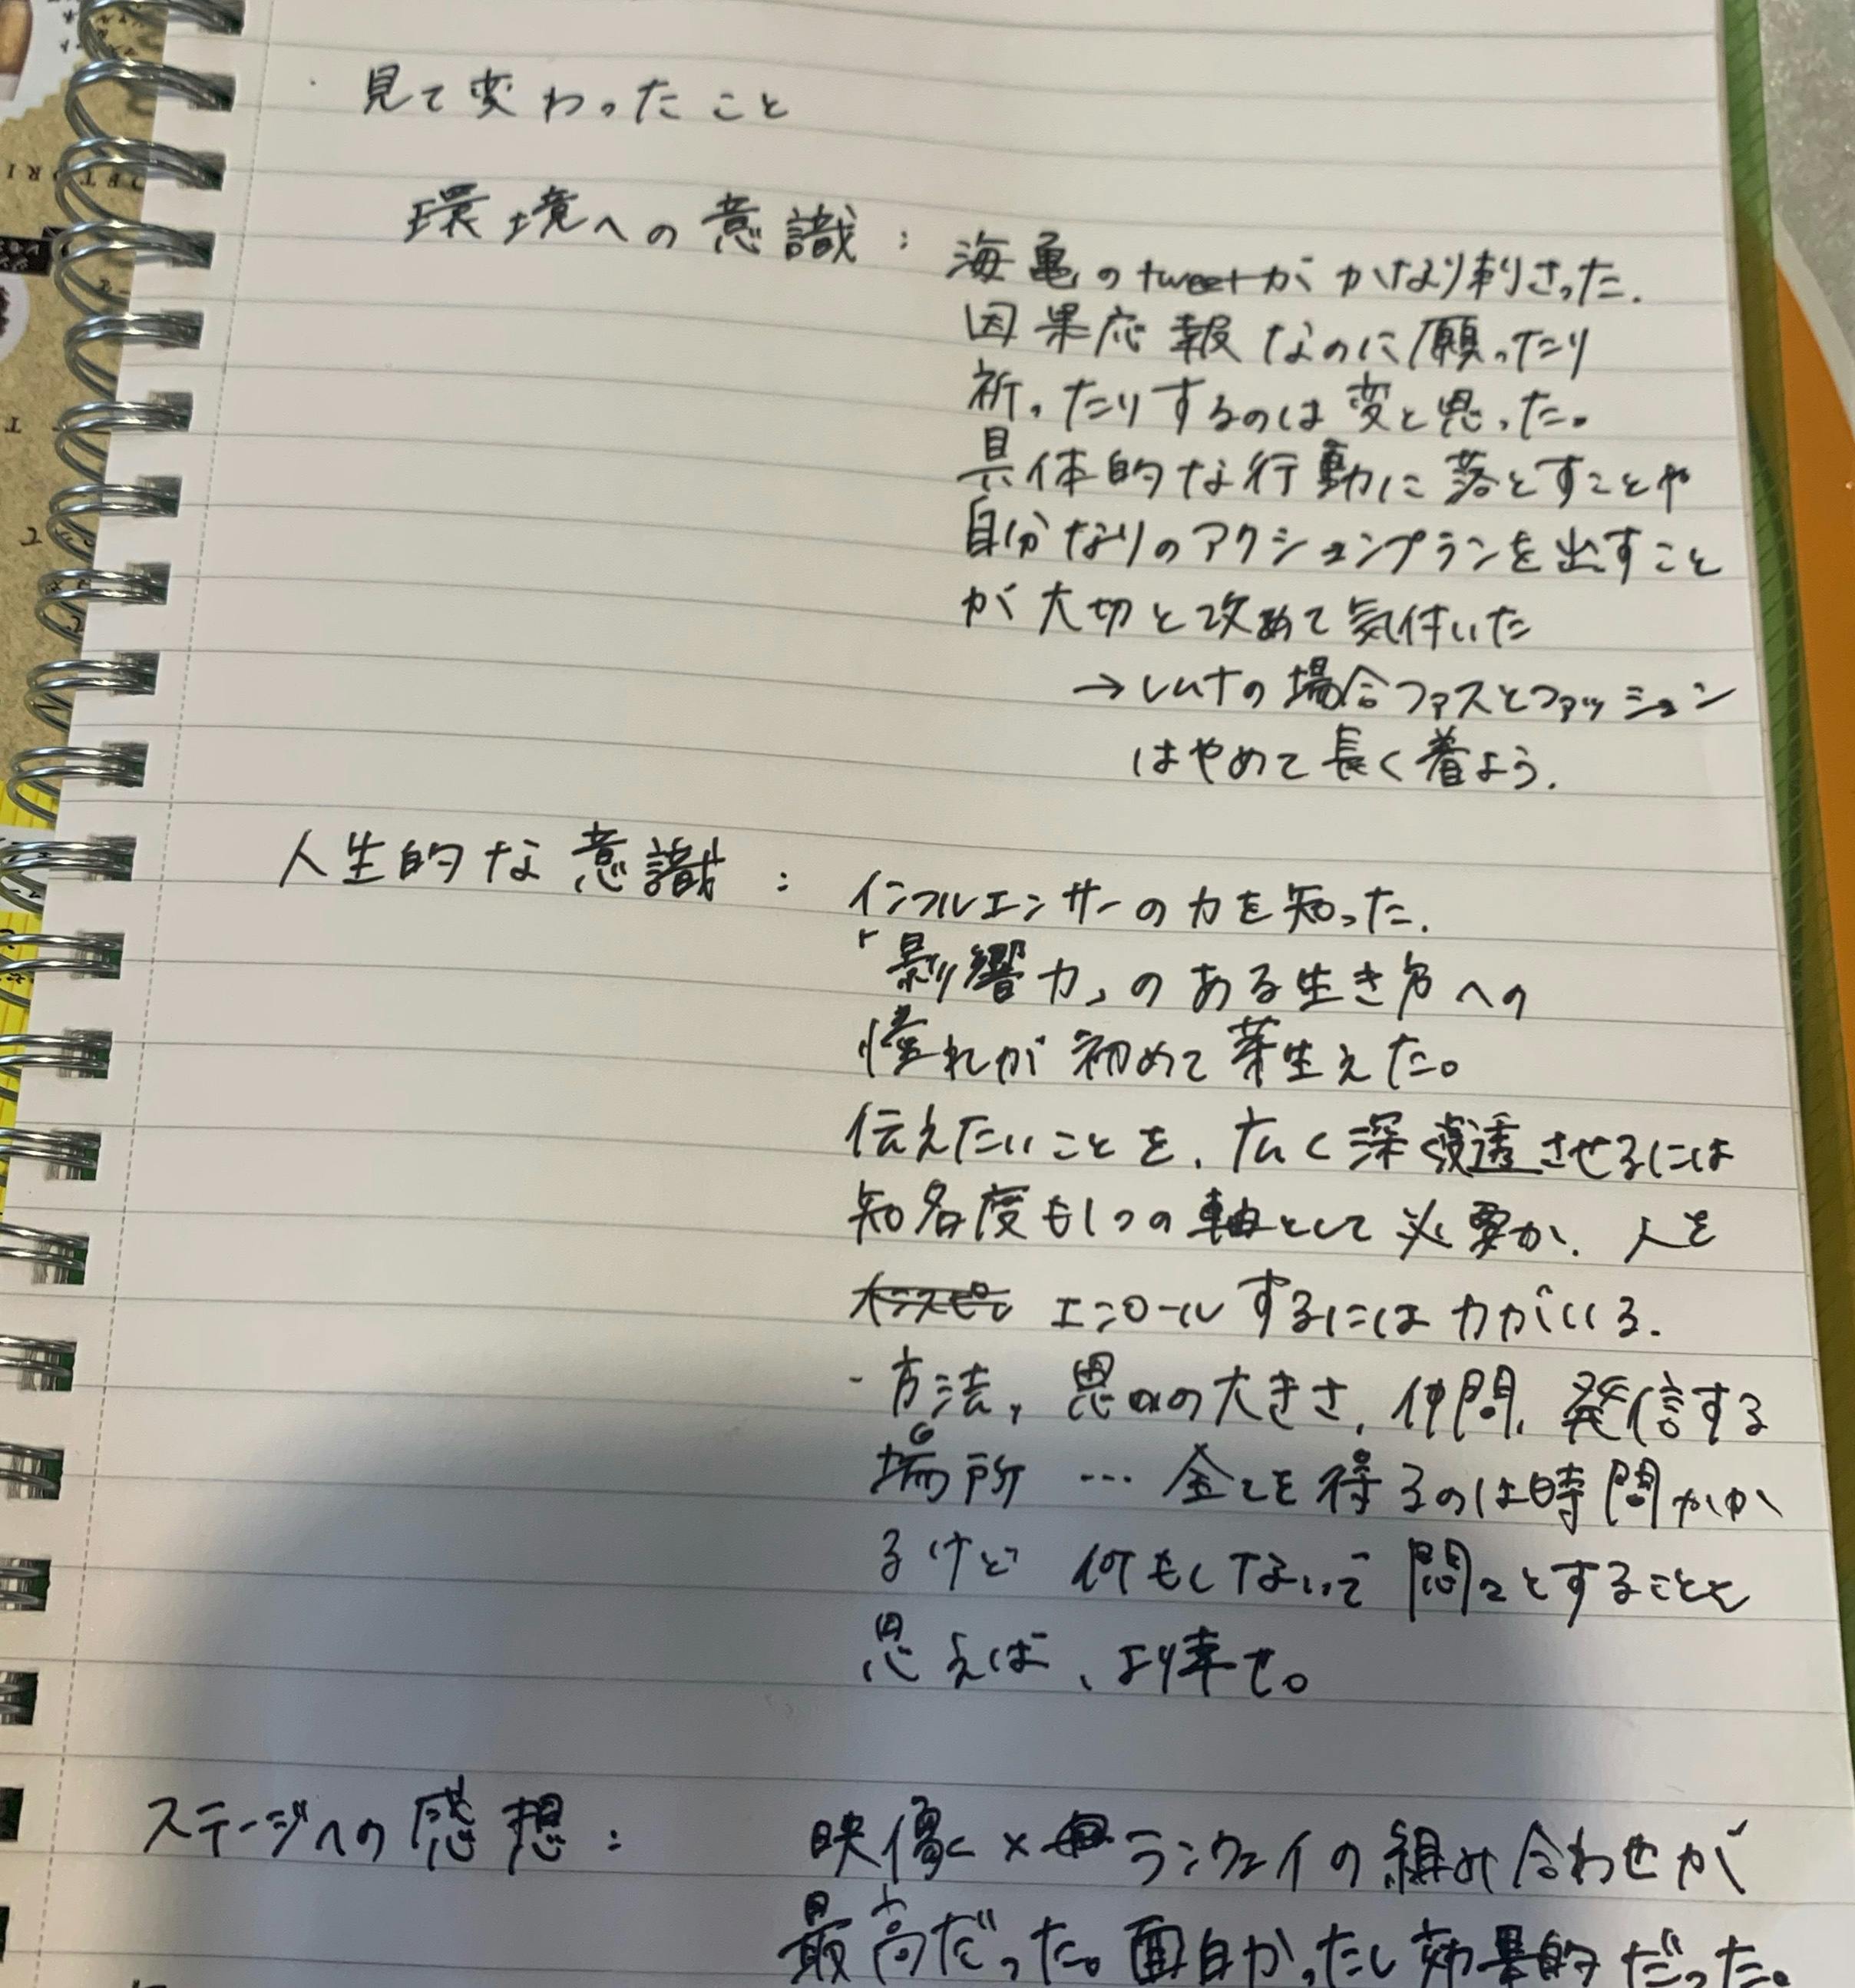 ・見て変わったこと
環境への意識：海亀のtweetがかなり刺さった.
因果応報なのに願ったり
祈ったりするのは変と思った。
具体的な行動に落とすことや
自分なりのアクションプランを出すこと
が大切と改めて気付いた
→ の場合ファストファッション
はやめて長く着よう.
人生的な意識：インフルエンサーの力を知った.
「影響力」のある生き方への
憧れが初めて芽生えた。
伝えたいことを、広く深く浸透させるには
知名度も1つの軸として必要か. 人を
エンロールするには力がいる.
・方法, 思いの大きさ, 仲間, 発信する
場所 … 全てを得るのは時間かか
るけど 何もしないで悶々とすることを
思えば、より幸せ。
ステージへの感想： 映像×ランウェイの組み合わせが
最高だった。面白かったし効果的だった。